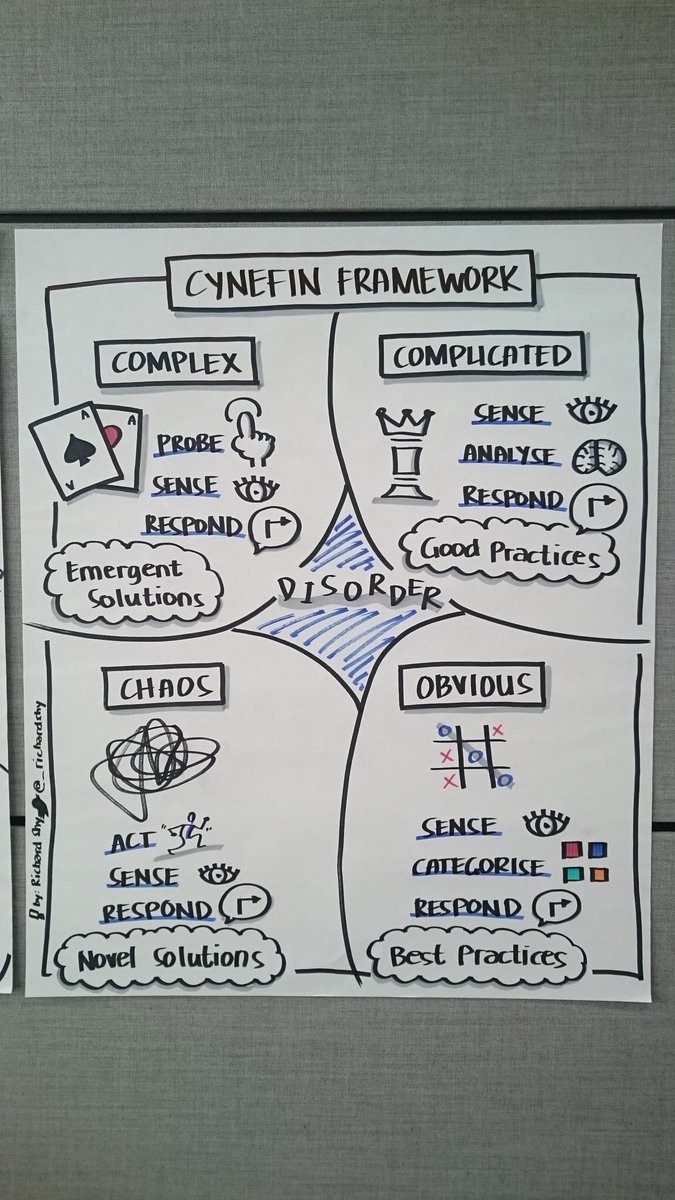 CYNEFIN FRAMEWORK
COMPLEX
A
A
PROBE
SENSE
RESPOND
Emergent
Solutions
COMPLICATED
SENSE
ANALYSE
RESPOND
Good Practices
DISORDER
CHAOS
ACT
SENSE
RESPOND
Novel Solutions
OBVIOUS
O X
X O
X O
SENSE
CATEGORISE
RESPOND
Best Practices
by: Richard Shy @_richardshy